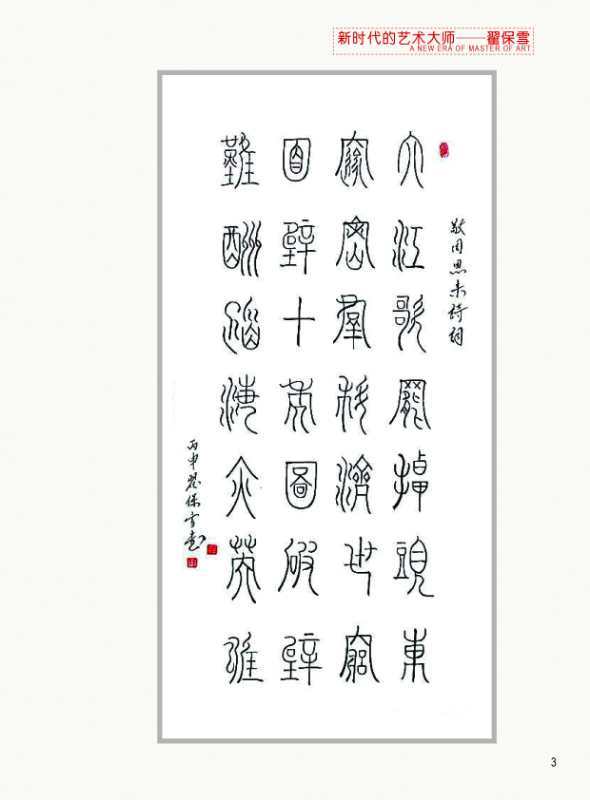 新时代的艺术大师——翟保雪
A NEW ERA OF MASTER OF ART
敬周恩来诗词
大江歌罷掉頭東
邃密羣科濟世窮
面壁十年圖破壁
難酬蹈海亦英雄
丙申翟保雪書
3